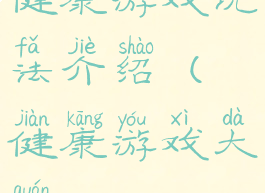 健康游戏玩
fǎ jiè shào
法介绍（
jiàn kāng yóu xì dà
健康游戏大
quán